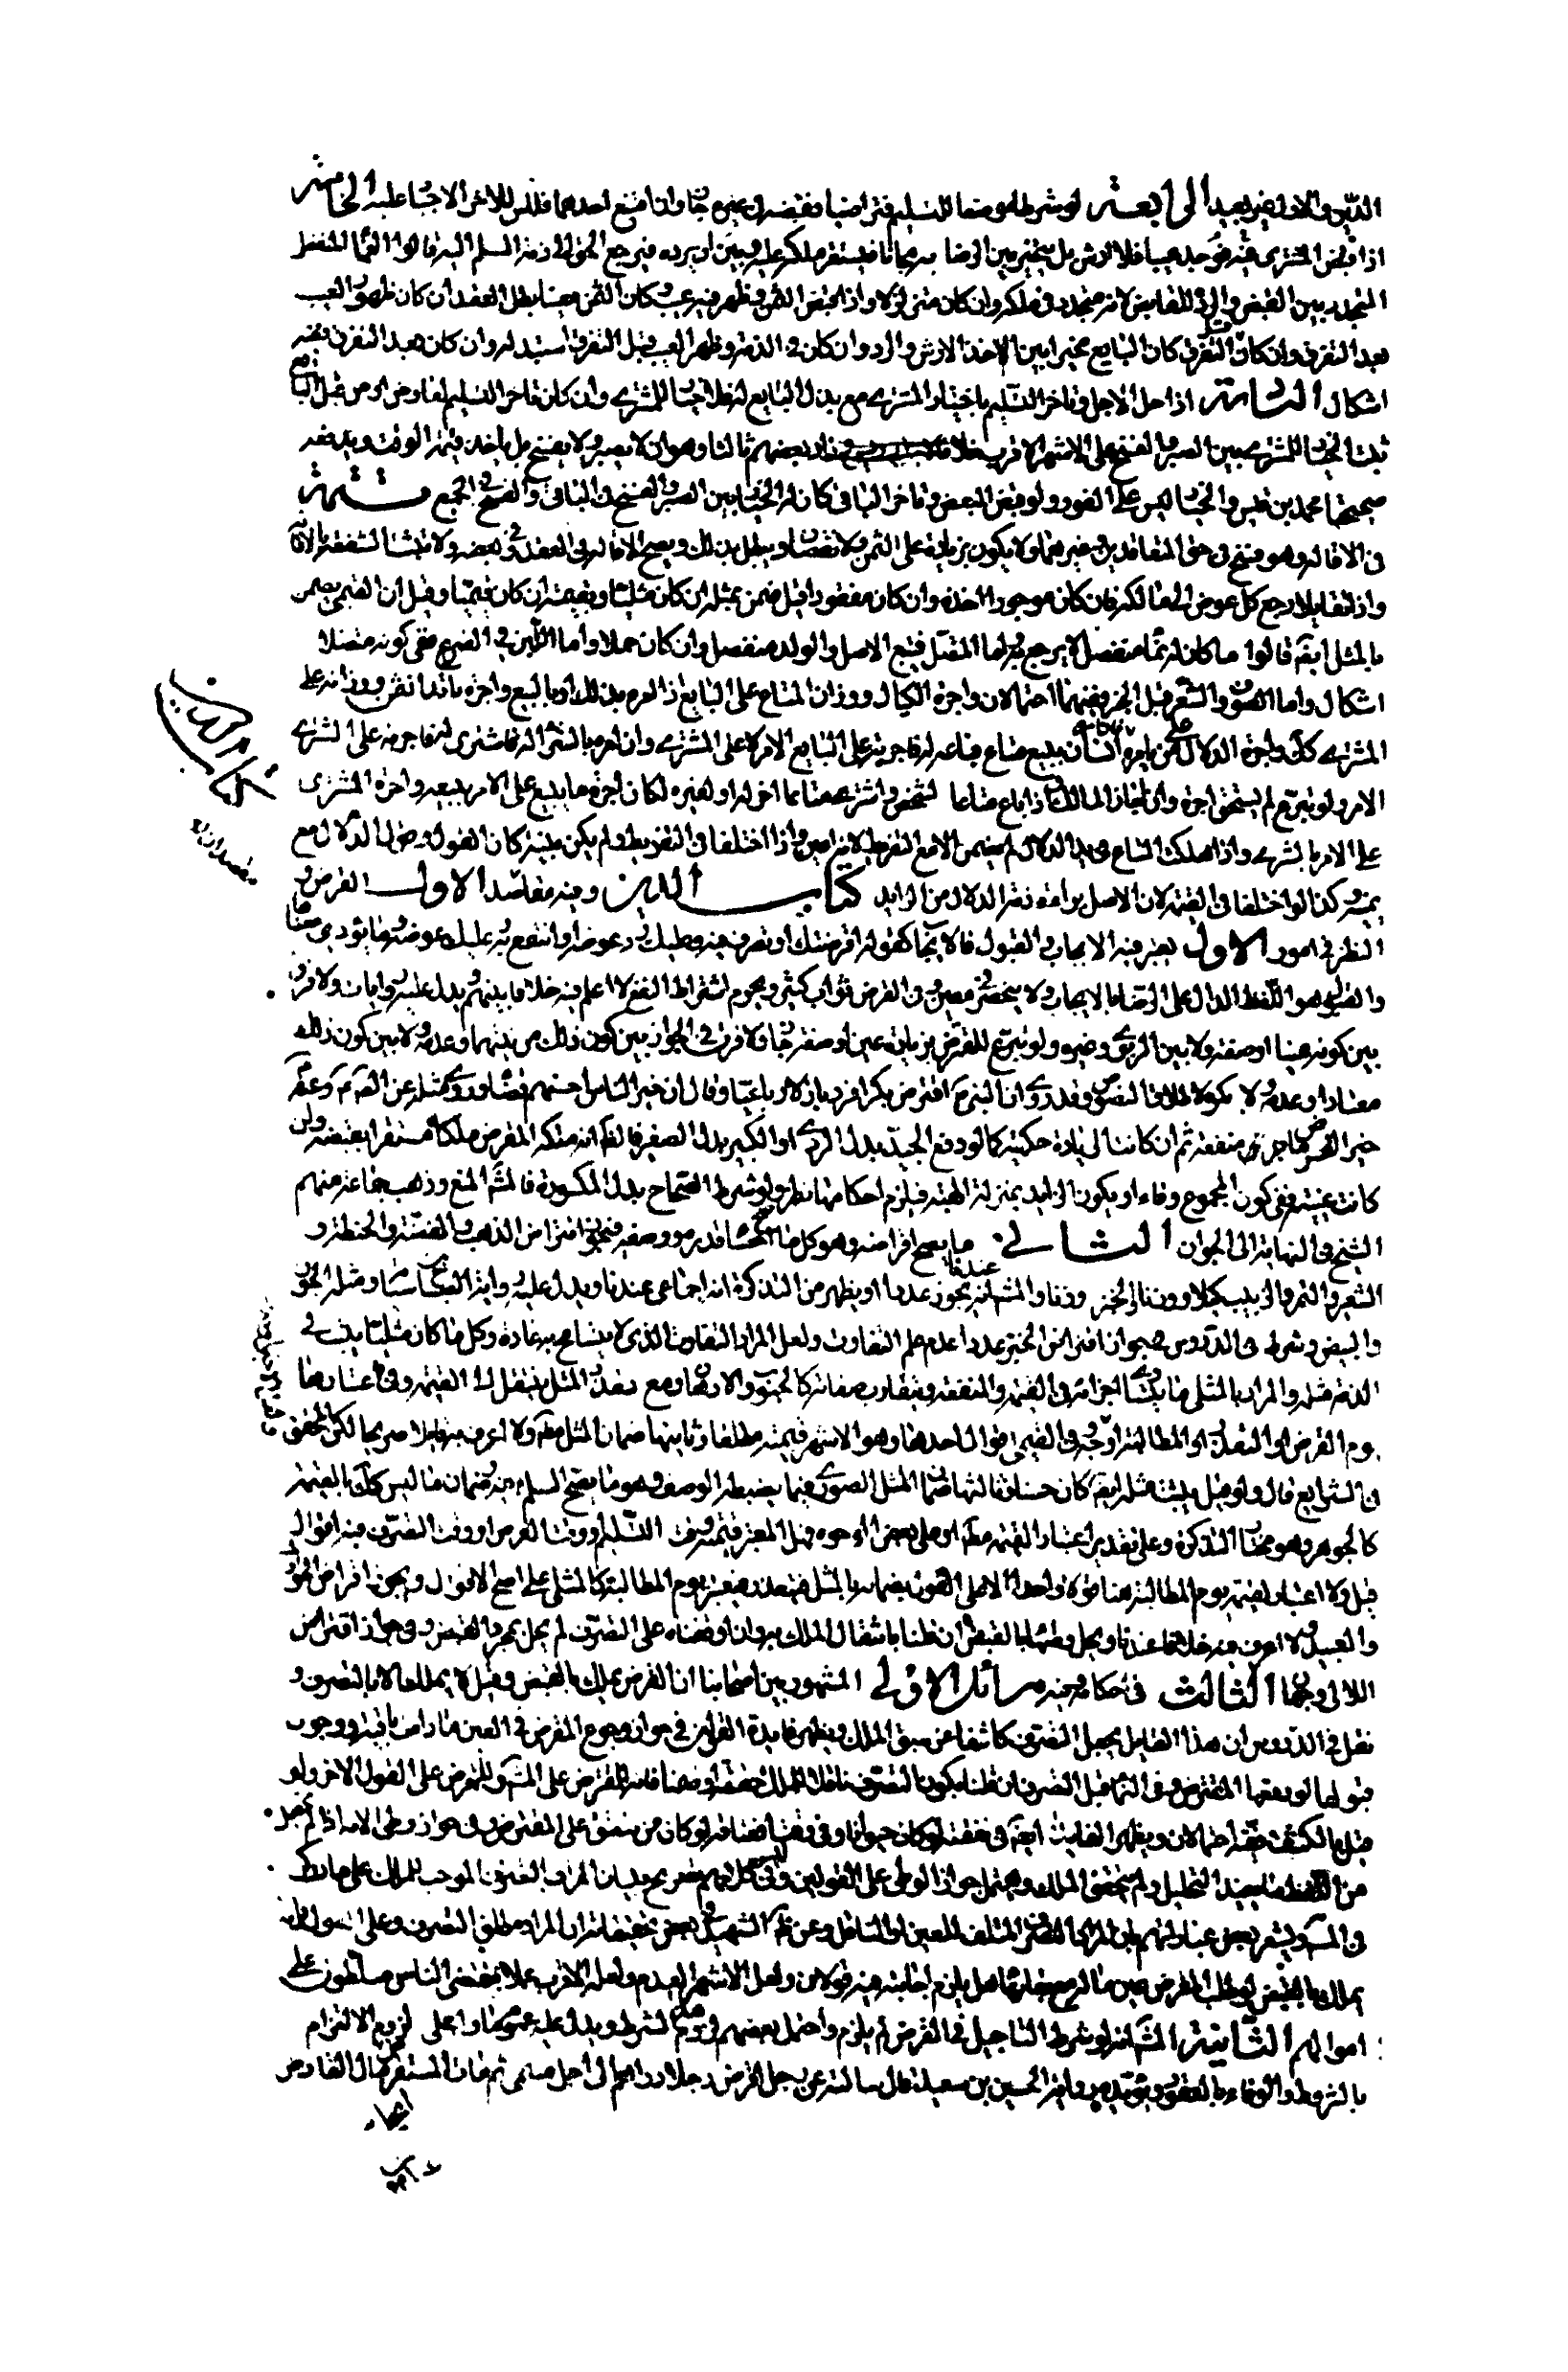 الدين والاول غير بعيد الرابعة لو شرطا موضعا للتسليم فتراضيا بقبضه في غيره جاز وان امتنع احدهما فليس للاخر الاجبار عليه الخامسة
اذا قبض المشتري فوجد عيبا فلا ارش بل يتخير بين الرضا به مجانا فيستقر ملكه عليه وبين ان يرده فيرجع الحق الى ذمة المسلم اليه قالوا النماء المنفصل
المتجدد بين القبض والرد للقابض لانه متجدد في ملكه وان كان متزلزلا واذا قبض الثمن وظهر فيه عيب وكان الثمن معينا بطل العقد ان كان ظهور العيب
بعد التفرق وان كان قبل التفرق كان البايع مخيرا بين الاخذ الارش والرد وان كان في الذمة وظهر العيب قبل التفرق استبدله وان كان بعد التفرق ففيه
اشكال اذا حل الاجل وتاخر التسليم باختيار المشتري مع بذل البايع له فلا خيار للمشتري وان كان تاخر التسليم لعارض او من قبل البايع
ثبت الخيار للمشتري بين الصبر والفسخ على الاشهر الاقرب وزاد بعضهم ثالثا وهو ان لا يصبر ولا يفسخ بل ياخذ قيمته الوقت ويدل عليه
صحيحة محمد بن قيس والخيار ليس على الفور ولو قبض البعض وتاخر الباقي كان له الخيار بين الصبر والفسخ في الباقي والفسخ في الجميع تتمة
في الاقالة وهو فسخ في حق المتعاقدين وغيرهما ولا يكون بزيادة على الثمن ولا نقصان ويبطل بذلك ويصح الاقالة في العقد وفي بعضه ولا يثبت الشفعة بالاقالة
واذا تقايلا رجع كل عوض الى مالكه فان كان موجودا اخذه وان كان مفقودا قيل ضمن بمثله ان كان مثليا وبقيمته ان كان قيميا وقيل ان القيمي يضمن
بالمثل ايضا قالوا ما كان له نماء منفصل لا يرجع به اما المتصل فيتبع الاصل والولد منفصل وان كان حملا واما اللبن في الضرع ففي كونه منفصلا
اشكال واما الصوف والشعر قبل الجز ففيهما احتمالان واجرة الكيال ووزان المتاع على البايع اذ الزم بذلك او بالبيع واجرة ناقد الثمن ووزانه على
المشتري كذا واجرة الدلال على من يامره انسان ببيع متاع فباعه له فاجرته على البايع الامر لا على المشتري وان امر بالشراء له فاشترى له فاجرته على المشتري
الامر ولو تبرع لم يستحق اجرة وان اجاز المالك واذا باع متاعا لشخص واشترى متاعا اخر له او لغيره كان اجرة ما يبيع على الامر ببيعه واجرة المشترى
على الامر بالشراء واذا هلك المتاع في يد الدلال لم يضمن الا مع التفريط لانه امين واذا اختلفا في التفريط ولم يكن بينة كان القول قول الدلال مع
يمينه وكذا لو اختلفا في القيمة لان الاصل براءة ذمة الدلال من الزايد كتاب الدين وفيه مقاصد الاول القرض و
النظر في امور الاول يعتبر فيه الايجاب والقبول فالايجاب كقوله اقرضتك او تصرف فيه وعليك رد عوضه او انتفع به وعليك عوضه وما يؤدي معناه
والقبول هو اللفظ الدال على الرضا بالايجاب ولا ينحصر في معين وفي القرض ثواب كثير ويحرم اشتراط النفع لا اعلم فيه خلافا بينهم يدل عليه روايات ولا فرق
بين كونه عينا او صفة ولا بين الربوي وغيره ولو تبرع المقترض بزيادة عين او صفة جاز ولا فرق في الجواز بين كون ذلك من نيتهما وعدمه ولا بين كون ذلك
معتادا وعدمه لا يكره لاطلاق النصوص وقد روي ان النبي ص اقترض بكرا فرد بازلا رباعيا وقال ان خير الناس احسنهم قضاء وروي مثله عن الصادق ع وعنه
خير القرض ما جر منفعة ثم ان كانت الزيادة حكمية كما لو دفع الجيد بدل الردي او الكبير بدل الصغير فالظاهر انه ملكه المقرض ملكا مستقرا بقبضه وان
كانت عينية ففي كون المجموع وفاء او يكون الزايد بمنزلة الهبة فيلزم احكامها نظر ولو شرط الصحاح بدل المكسورة فالمشهور المنع وذهب جماعة منهم
الشيخ في النهاية الى الجواز الثاني ما يصح اقراضه وهو كل ما يمكن احصاء قدره ووصفه فيجوز اقراض الذهب والفضة والحنطة و
الشعير والتمر والزبيب كيلا ووزنا والخبز وزنا والمشهور انه يجوز عددا ويظهر من التذكرة انه اجماعي عندنا ويدل عليه رواية الصباح بن سيابة ومثله الجوز
والبيض وشرط في الدروس في جواز اقتراض الخبز عددا عدم علم التفاوت ولعل المراد التفاوت الذي لا يتسامح به عادة وكل ما كان مثليا يثبت في
الذمة مثله والمراد بالمثلي ما يتساوى اجزائه في القيمة والمنفعة ويتقارب صفاته كالحبوب والادهان ومع تعذر المثل ينتقل الى القيمة وفي اعتبارها
يوم القرض او التعذر او المطالبة اوجه وفي القيمي اقوال احدها وهو الاشهر قيمته مطلقا وثانيها ضمان المثل مطلقا ولا اعرف به قايلا صريحا لكن المحقق
في الشرايع قال ولو قيل يثبت مثله ايضا كان حسنا وثالثها ضمان المثل الصوري فيما يضبطه الوصف وهو ما يصح السلم فيه وضمان ما ليس كذلك بالقيمة
كالجوهر وهو مختار التذكرة وعلى تقدير اعتبار القيمة مطلقا او على بعض الوجوه فهل المعتبر قيمته وقت التسليم او وقت القرض او وقت التصرف فيه اقوال
قيل ولا اعتبار لقيمته يوم المطالبة هنا قولا واحدا الا على القول بضمانه بالمثل فيتعذر فيعتبر يوم المطالبة كالمثلي على اصح الاقوال ويجوز اقراض الجواري
والعبيد ولا اعرف فيه خلافا عندنا ويحل وطئها بالقبض ان قلنا بانتقال الملك به وان اوقفناه على التصرف لم يحل بمجرد القبض وفي جواز اقتراض
اللالي وجهان الثالث في احكامه وفيه مسائل الاولى المشهور بين اصحابنا ان القرض يملك بالقبض وقيل لا يملك الا بالتصرف و
نقل في الدروس ان هذا القايل يجعل التصرف كاشفا عن سبق الملك ويظهر فايدة القولين في جواز رجوع المقرض في العين ما دامت باقية ووجوب
قبولها لو دفعها المقترض وفي النماء قبل التصرف ان قلنا بكون التصرف ناقلا للملك حقيقة او ضمنا فانه للمقترض على المشهور وللمقرض على القول الاخر ولو
قيل بالكشف احتمالان ويظهر الفايدة ايضا في نفقته لو كان حيوانا وفي وقت انعتاقه لو كان ممن ينعتق على المقترض وفي جواز وطي الامة اذا لم نجد
من اللفظ ما يفيد التحليل ولم يتحقق الملك ويحتمل جواز الوطي على القولين وفي كلامهم تصريح ببيان المراد بالتصرف الموجب للملك على ما ذكر
في المسالك ويشعر بعض عباراتهم بان المراد التصرف المتلف للعين او الناقل وعن ظاهر الشهيد في بعض تحقيقاته ان المراد مطلق التصرف وعلى القول بانه
يملك بالقبض لو طلب المقرض عين ماله مع بقائها هل يلزم اجابته فيه قولان ولعل الاشهر العدم ولعله الاقرب عملا بمقتضى الناس مسلطون على
اموالهم الثانية المشهور انه لو شرط التاجيل في القرض لم يلزم واحتمل بعضهم لزوم الشرط ويدل عليه عموم ما دل على لزوم الالتزام
بالشروط والوفاء بالعقود ويؤيده رواية الحسين بن سعيد قال سالته عن رجل اقرض رجلا دراهم الى اجل مسمى ثم مات المستقرض ايحل مال القارض
كتاب الدين